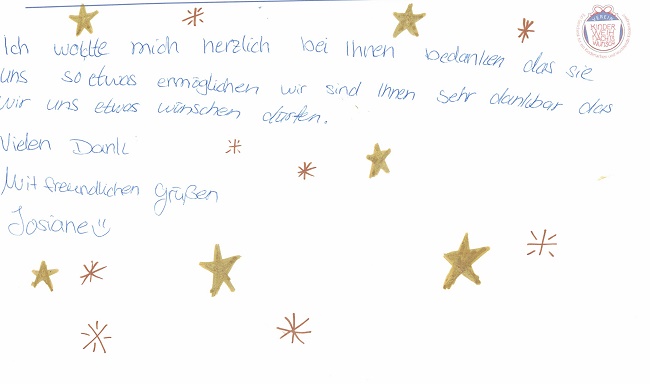 Ich wollte mich herzlich bei Ihnen bedanken das sie
uns so etwas ermöglichen wir sind Ihnen sehr dankbar das
wir uns etwas wünschen dürfen.
Vielen Dank
Mit freundlichen Grüßen
Josiane